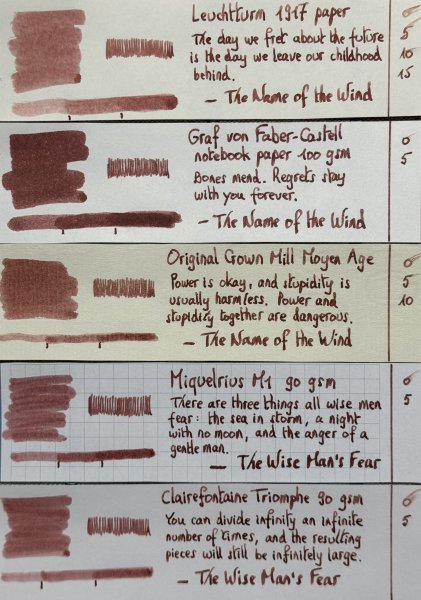 Leuchtturm 1917 paper
The day we fret about the future
is the day we leave our childhood
behind.
— The Name of the Wind
0
5
10
15
Graf von Faber-Castell
notebook paper 100 gsm
Bones mend.. Regrets stay
with you forever.
— The Name of the Wind
0
5
Original Crown Mill Moyen Age
Power is okay, and stupidity is
usually harmless. Power and
stupidity together are dangerous.
— The Name of the Wind
0
5
10
Miquelrius M1 90 gsm
There are three things all wise men
fear: the sea in storm, a night
with no moon, and the anger of a
gentle man.
— The Wise Man's Fear
0
5
Clairefontaine Triomphe 90 gsm
You can divide infinity an infinite
number of times, and the resulting
pieces will still be infinitely large.
— The Wise Man's Fear
0
5